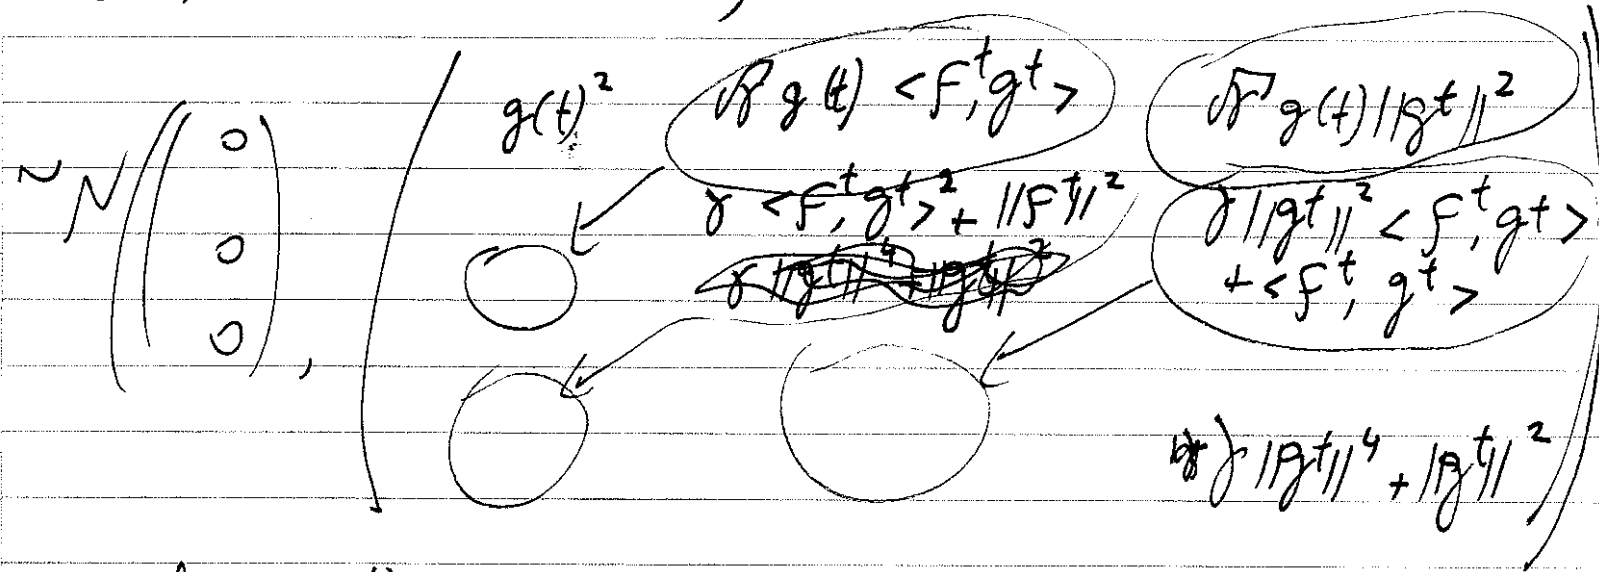 g(t)² √γ g(t) <f^t, g^t> √γ g(t) ||g^t||²
~ N((0 0 0), γ <f^t, g^t>² + ||f^t||² γ ||g^t||² <f^t, g^t>
+ <f^t, g^t>
γ ||g^t||⁴ + ||g^t||²